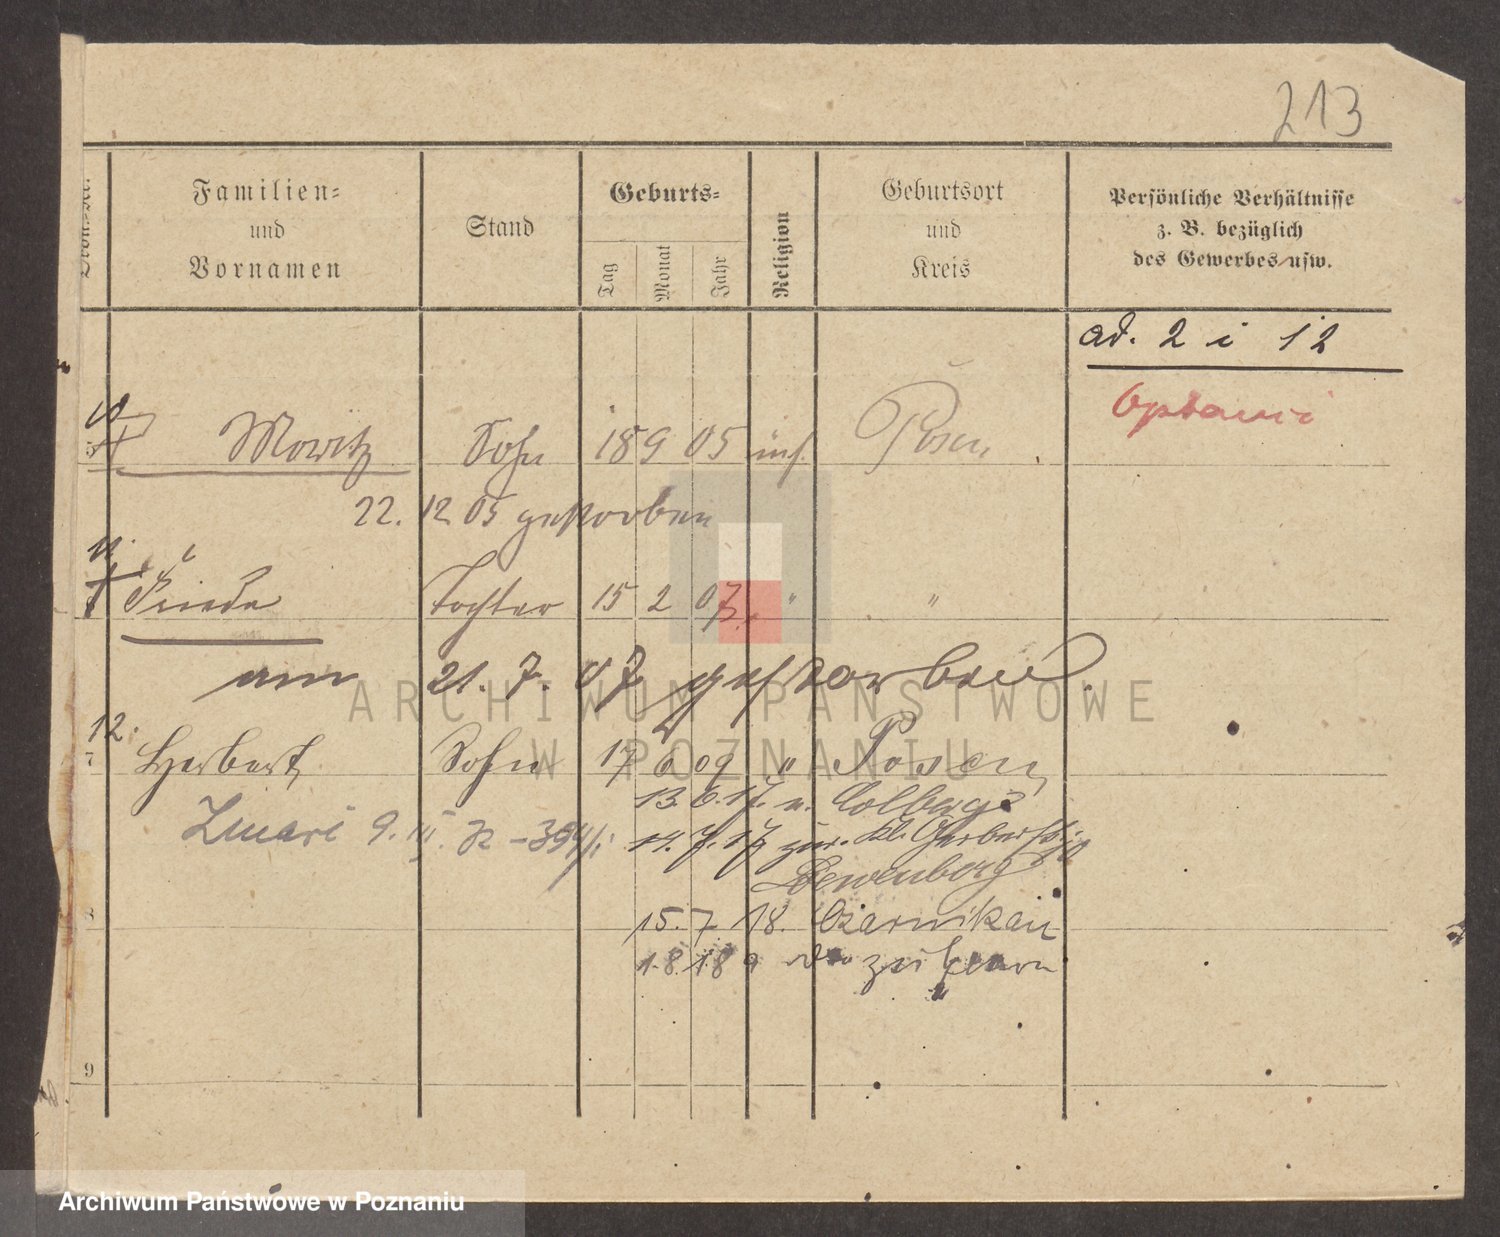 213
Familien= und Vornamen
Stand
Geburts=
Tag
Monat
Jahr
Religion
Geburtsort und Kreis
Persönliche Verhältnisse z. B. bezüglich des Gewerbes usw.
ad. 2 i 12
Optanci
10 Moritz Sohn 18 9 05 Posen
22. 12 05 gestorben
11. Frieda Tochter 15 2 07 " "
am 21. 7. 07 gestorben.
12. 7 Herbert Sohn 17 6 09 " Posen
13. 6. 17. n. Colberg
Zmarł 9. III.
14. 7. 17 zur. Kl. Gerberstr.
Loewenberg
15. 7 18. Czarnikau
1. 8. 18 zurück
9
ARCHIWUM PAŃSTWOWE
W POZNANIU
Archiwum Państwowe w Poznaniu